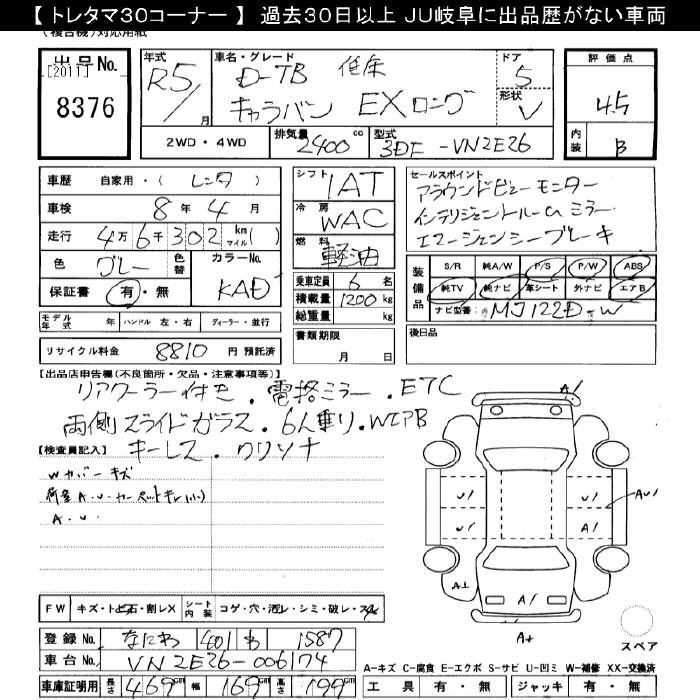 【トレタマ30コーナー】 過去30日以上 JU岐阜に出品歴がない車両
出品No. [2011] 8376
年式 R5/ 月
車名・グレード D-TB 低床 キャラバン EXロング
ドア 5
形状 V
評価点 4.5
内装 B
2WD・4WD 排気量 2400cc 型式 3DF-VN2E26
車歴 自家用・(レンタ)
車検 8年4月
走行 4万6千302 km マイル( )
色 グレー 色替 カラーNo. KAD
保証書 有・無
モデル年式 年 ハンドル 左・右 ディーラー・並行
リサイクル料金 8810 円 預託済
シフト IAT
冷房 WAC
燃料 軽油
乗車定員 6 名
積載量 1200 kg
総重量 kg
書類期限 月 日
セールスポイント
アラウンドビューモニター
インテリジェントルームミラー
エマージェンシーブレーキ
装備品 S/R 純A/W P/S P/W ABS
純TV 純ナビ 革シート 外ナビ エアB
ナビ型番: MJ122D-W
後日品
【出品店申告欄(不良箇所・欠品・注意事項等)】
リアクーラー付き.電格ミラー.ETC
両側スライドガラス.6人乗り.WエアB
キーレス.クリソナ
【検査員記入】
Wカバーキズ
A.U.
FW キズ・トビ石・割レX シート内装 コゲ・穴・汚レ・シミ・破レ・スレ
登録No. なにわ 401 わ 1587
車台No. VN2E26-006174
車庫証明用 長さ 469cm 幅 169cm 高さ 199cm
A1
U1 U1 AU1
U1 A1
A1 A1
A1
スペア
A-キズ C-腐食 E-エクボ S-サビ U-凹ミ W-補修 XX-交換済
工具 有・無 ジャッキ 有・無